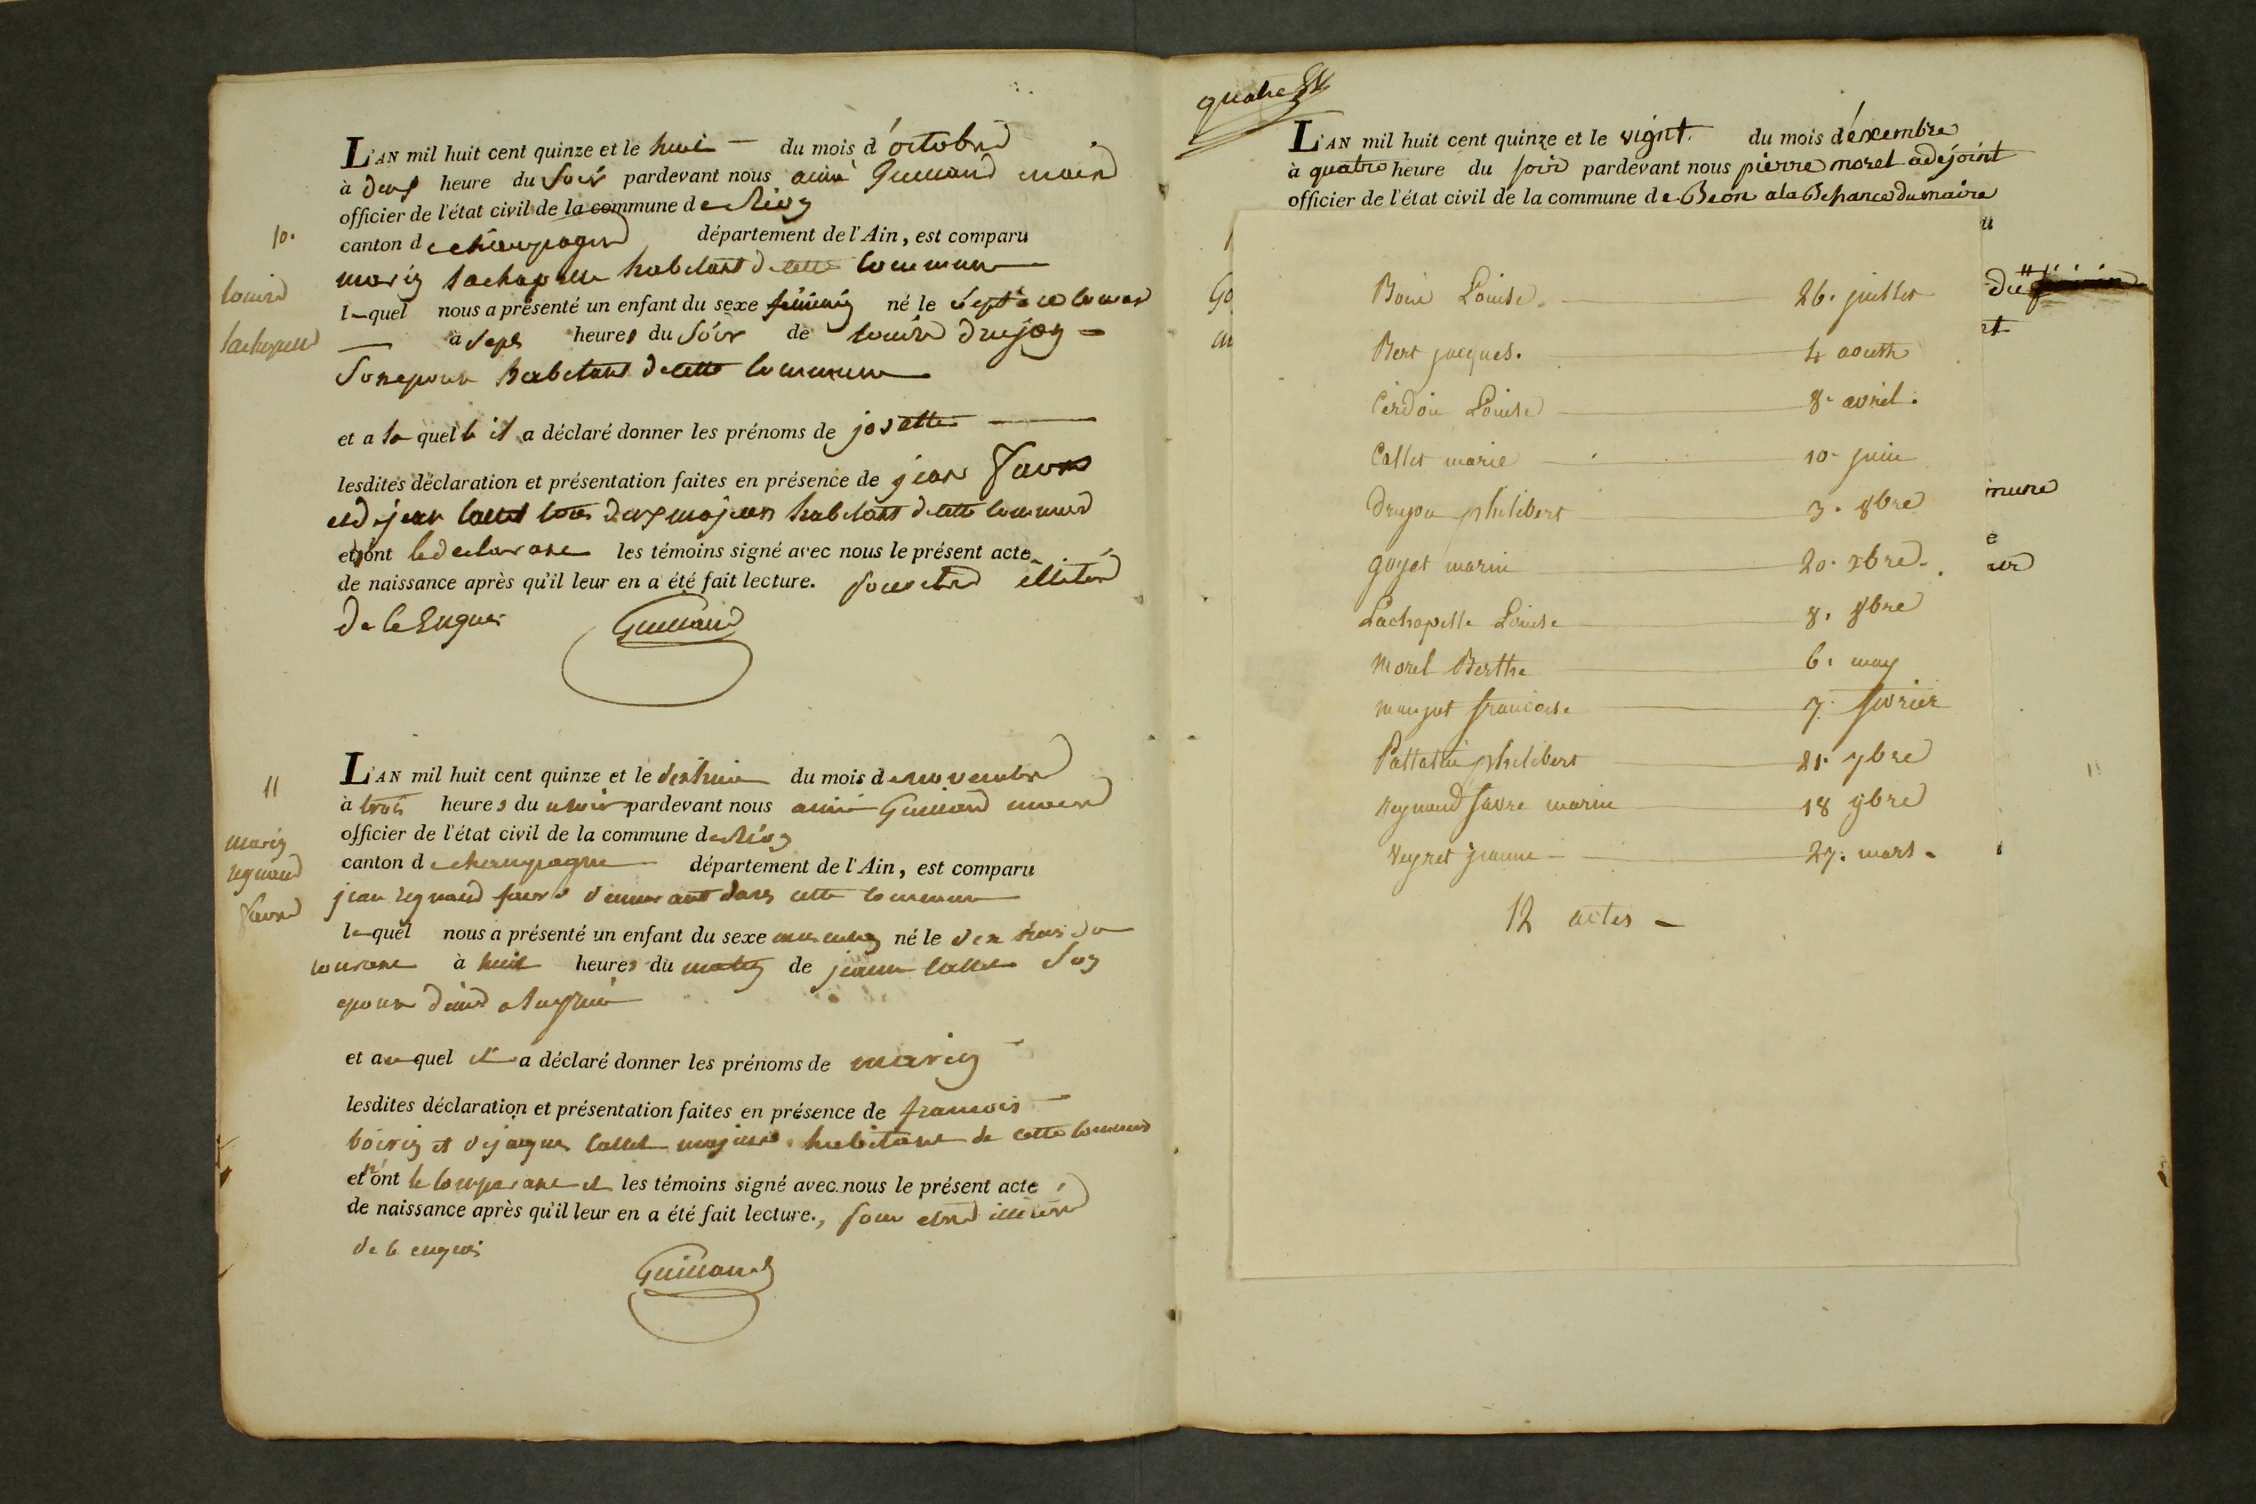 10.
L'AN mil huit cent quinze et le huit du mois d'octobre
à deux heure du soir pardevant nous aimé Guilland maire
officier de l'état civil de la commune de Béon
canton de champagne département de l'Ain, est comparu
louise
marin lachapelle habitant de cette commune
lequel nous a présenté un enfant du sexe feminin né le sept
lachapelle
à sept heures du soir de louise drujon
son epouse habitant de cette commune
et a la quelle il a déclaré donner les prénoms de
lesdites déclaration et présentation faites en présence de jean favre
et de jean callet tous deux majeurs habitant de cette commune
et ont le declarant les témoins signé avec nous le présent acte
de naissance après qu'il leur en a été fait lecture. illitéré
de ce enquis
Guilland
11
L'AN mil huit cent quinze et le dixhuit du mois de novembre
à trois heures du soir pardevant nous aimé Guilland maire
officier de l'état civil de la commune de Béon
marin
reynaud
favre
canton de champagne département de l'Ain, est comparu
jean reynaud favre demeurant dans cette commune
lequel nous a présenté un enfant du sexe masculin né le dix huit du
courant à huit heures du matin de jeanne callet son
epouse
et au quel il a déclaré donner les prénoms de marin
lesdites déclaration et présentation faites en présence de francois
et de jaques callet majeurs habitant de cette commune
et n'ont le comparant et les témoins signé avec nous le présent acte
de naissance après qu'il leur en a été fait lecture., pour etre illitéré
de ce enquis
Guilland
quatre
L'AN mil huit cent quinze et le vignt du mois déxembre
à quatre heure du soir pardevant nous pierre morel adejoint
officier de l'état civil de la commune de Beon a la Bsance du maire
Boin Louise. 26. juillet
Bert jacques. 4 aoust
Cerdon Louise 8. avril.
Callet marie 10. juin
Drujon philibert 3. 8bre
goyet marin 20. xbre.
Lachapelle Louise 8. 8bre
morel Berthe 6. may
manjot francoise 7. fevrier
Pattatin philibert 21. 7bre
Reynaud favre marin 18 9bre
Veyret jeanne 27. mars.
12 actes